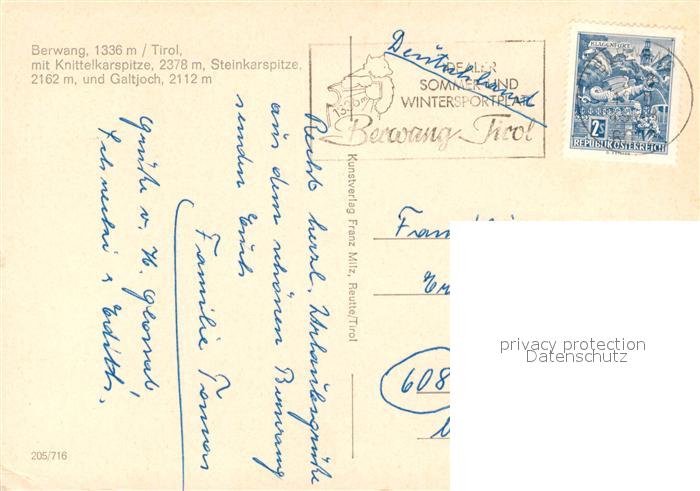 Berwang, 1336 m / Tirol,
mit Knittelkarspitze, 2378 m, Steinkarspitze,
2162 m, und Galtjoch, 2112 m
Deutschland
IDEALER
SOMMER- UND
WINTERSPORTPLATZ
Berwang Tirol
KLAGENFURT
2S
REPUBLIK ÖSTERREICH
Recht herzl. Urlaubsgrüße
aus dem schönen Berwang
senden Euch
Familie
Grüße v. H.
Kunstverlag Franz Milz, Reutte/Tirol
608
privacy protection
Datenschutz
205/716